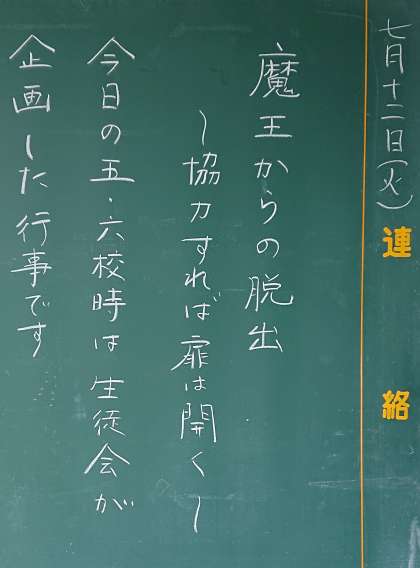 七月十二日(火)
連絡
魔王からの脱出
～協力すれば扉は開く～
今日の五・六校時は生徒会が
企画した行事です